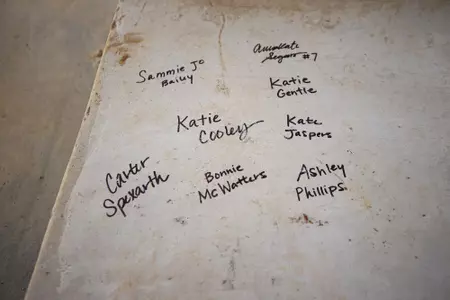 Sammie Jo
Bailey
#7
Katie
Gentle
Katie
Cooley
Kate
Jaspers
Carter
Spexarth
Bonnie
McWatters
Ashley
Phillips